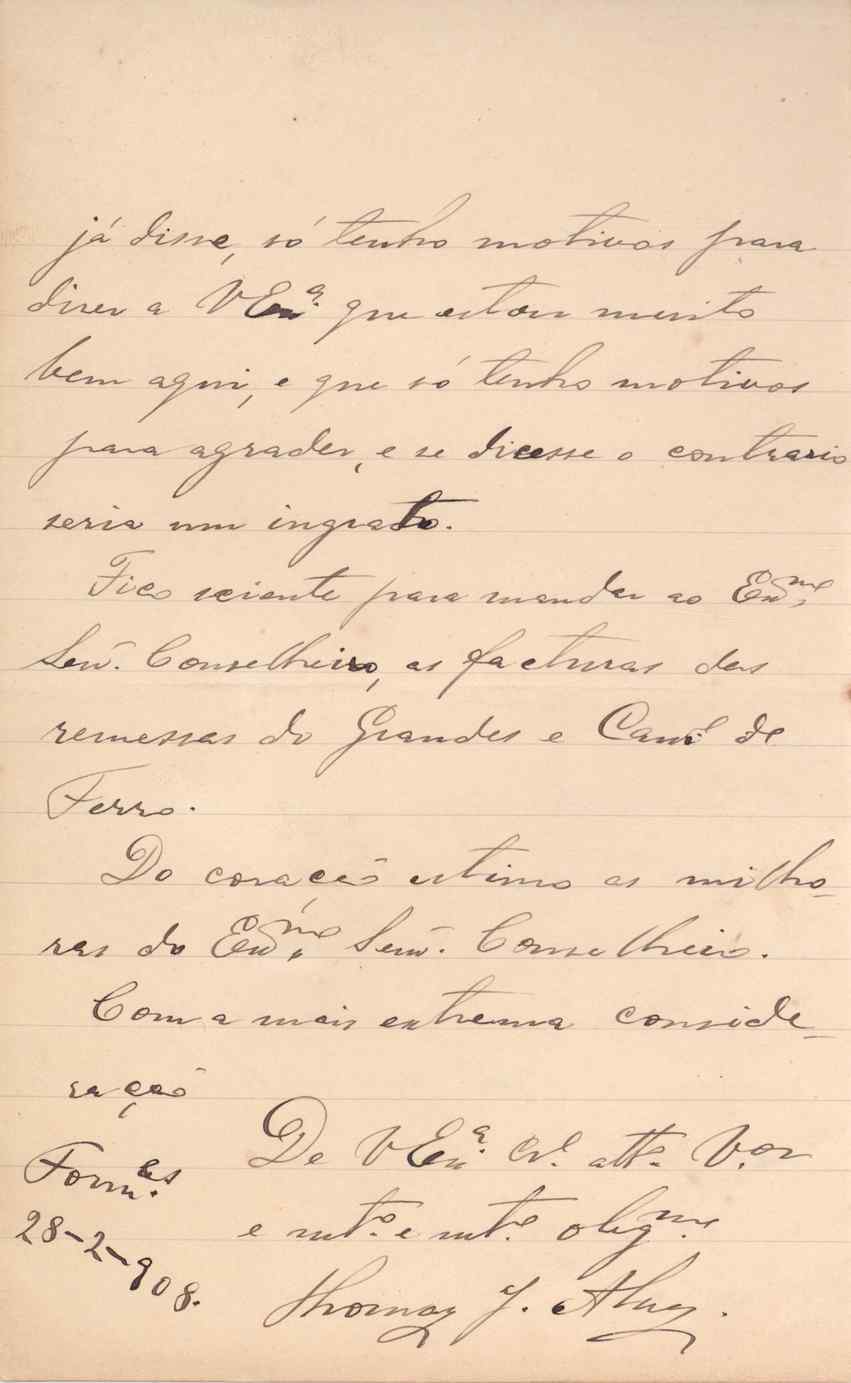 já disse, só tenho motivos para
diser a VExª. que estou muito
bem aqui, e que só tenho motivos
para agrader, e se dicesse o contrario
seria um ingrato.
Fico sciente para mandar ao Exmo.
Senr. Conselheiro, as facturas das
remessas do Grandes e Camº de
Ferro.
Do coração estimo as milho-
ras do Exmo. Senr. Conselheiro.
Com a mais extrema conside-
ração
De VExª. Crº. attº. V.or
e mtº. e mtº. obrigmo.
Thomaz J. Alvez.
28-2-908.